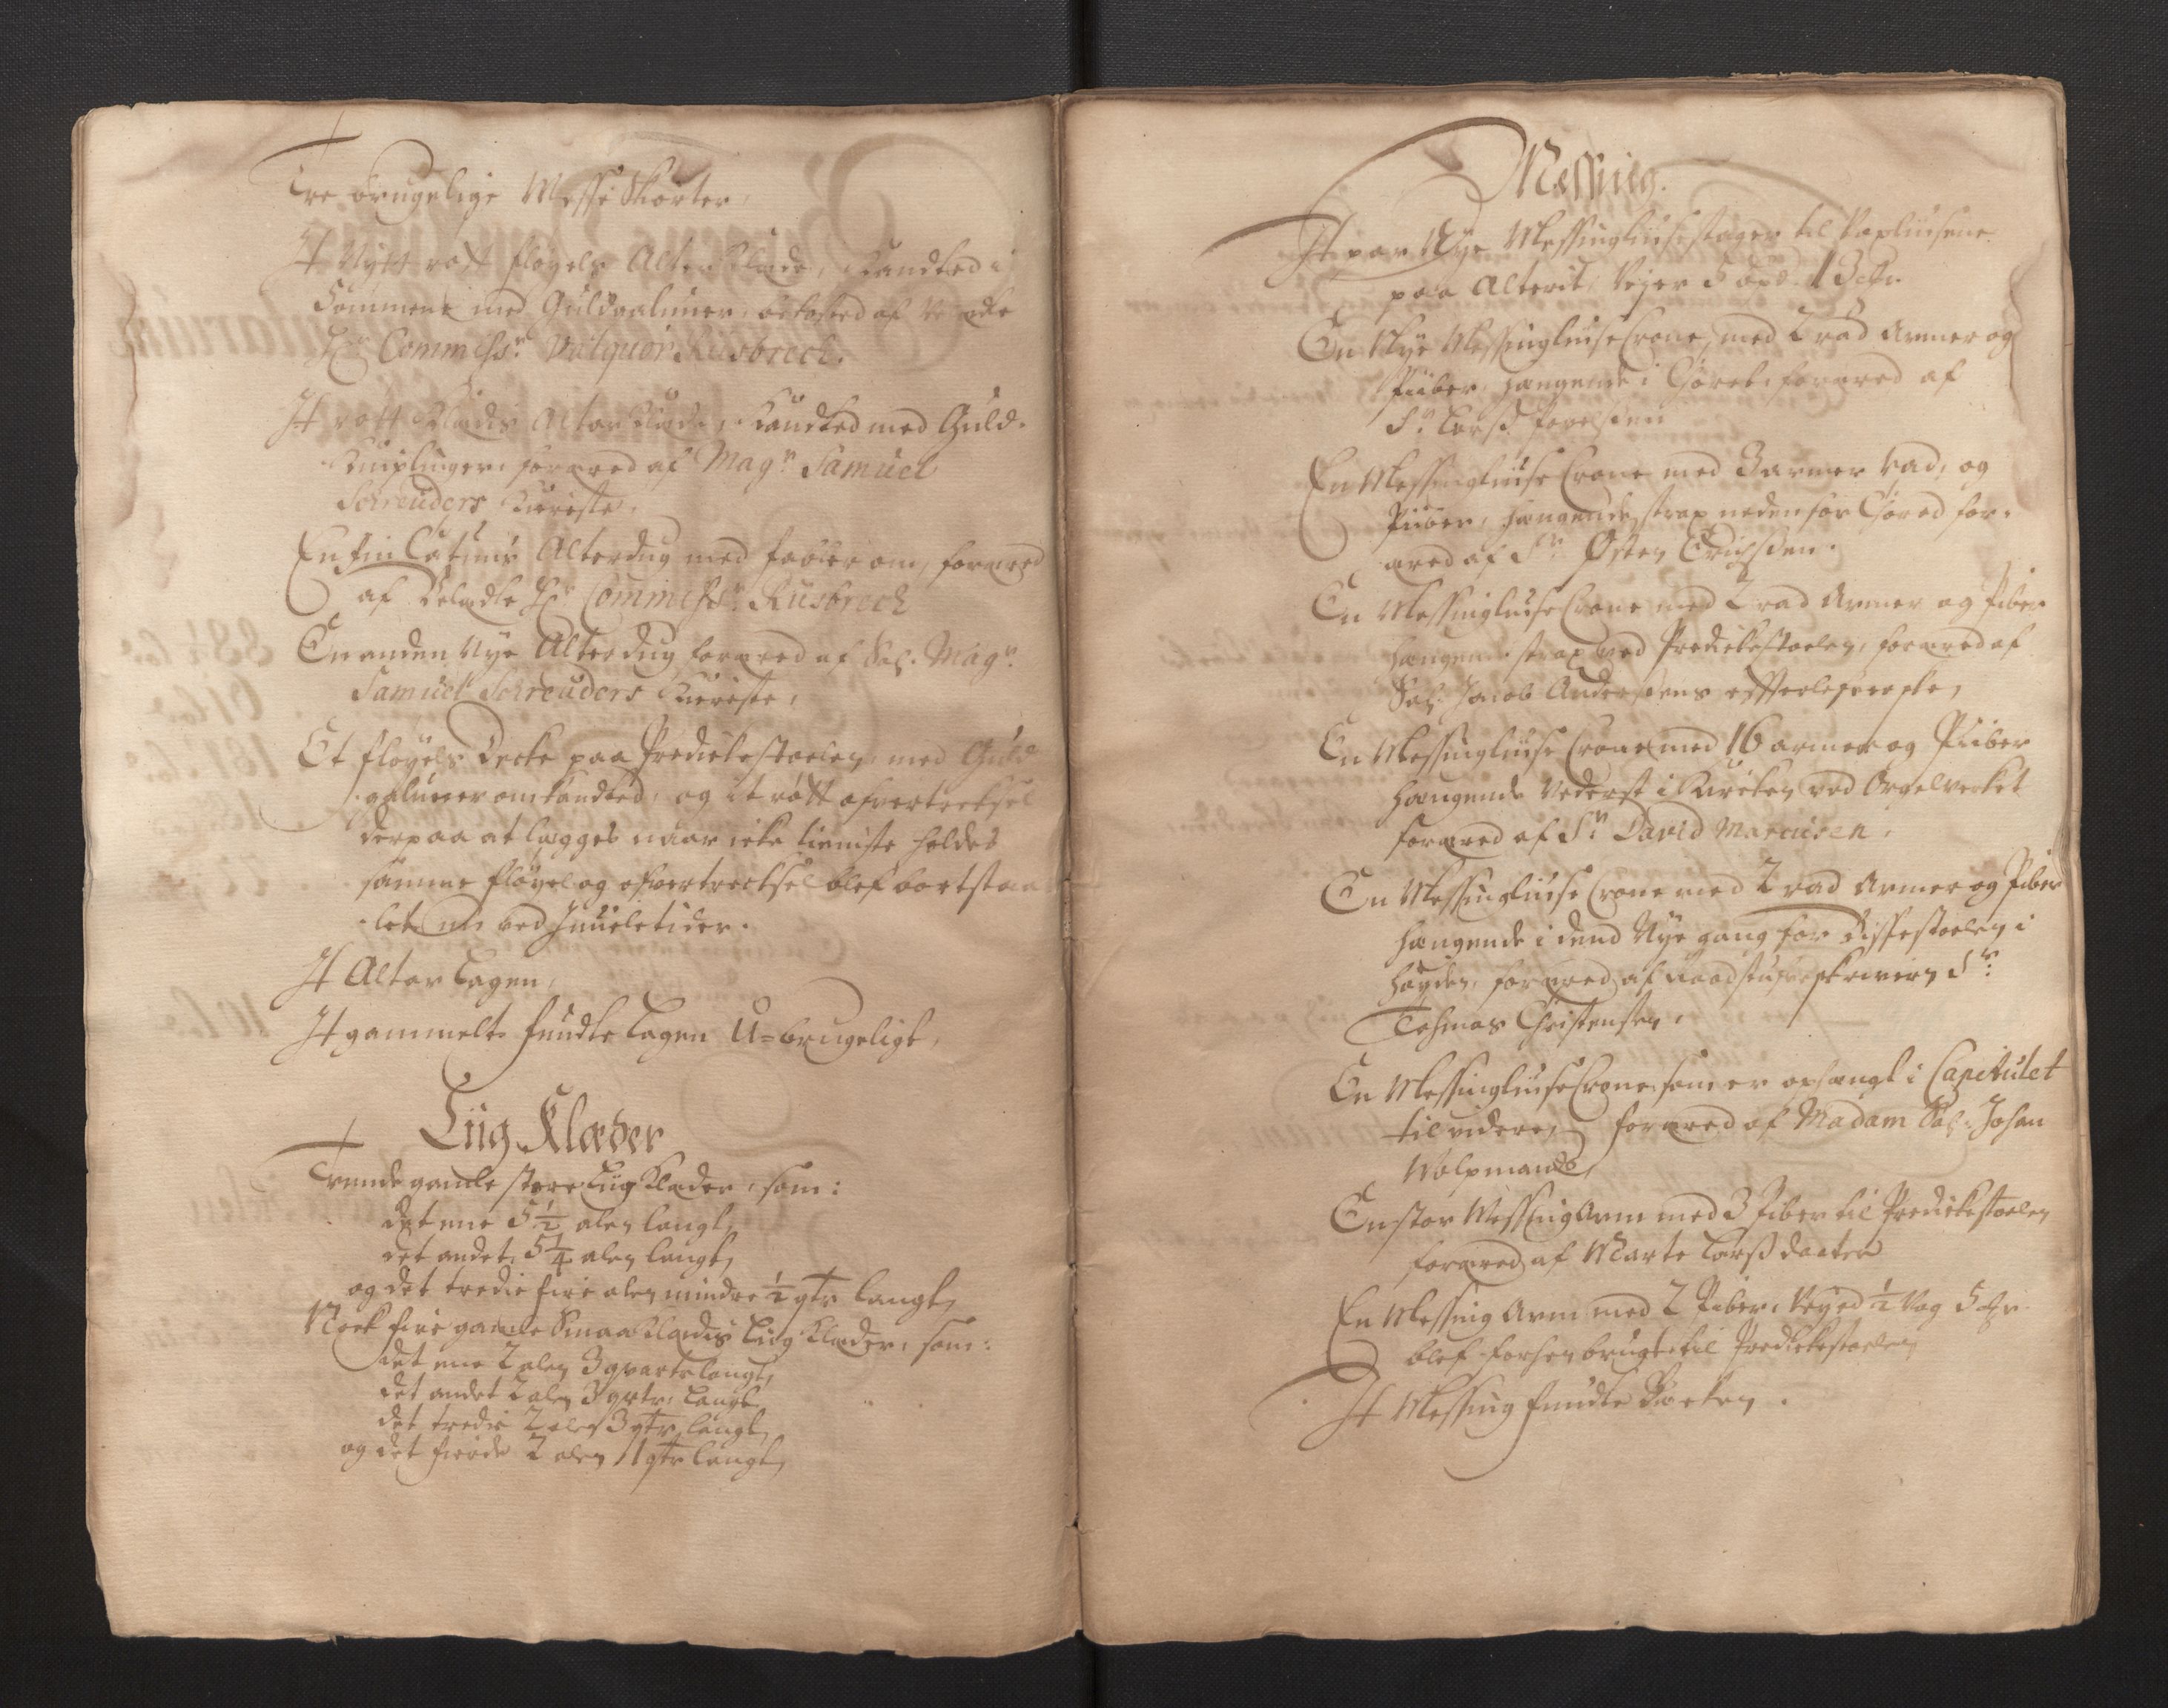 Tre brugelige Messe Skiorter,
It Nytt røtt fløyels Alter Klæde, Kandted i
Sømmene med Guldgaluner, bekosted af Velædle
Hr. Commiss:r Rusbrech.
It røtt Klædis Altar Klæde, Kandted med Guld-
Kniplinger, foræred af Mag:r Samuel
Schreuders Kiereste,
En fin Catuns Alterdug med om, foræred
af Velædle Hr. Commiss:r Rusbrech
En anden Nye Alterdug foræred af Sal. Mag:r
Samuel Schreuders Kiereste,
Et fløyels Decke paa Predickestoelen, med Guld
galuner omkandted, og it røtt ofvertrecksel
derpaa at lægges naar icke tieniste holdes
samme fløyel og ofvertrecksel blef bortstaa-
let nu ved Juuletider.
It Altar Lagen,
It gammelt fundte Lagen U=brugeligt,
Liig Klæder
Trende gamle store Liig Klæder, som:
det ene 5 1/2 alen langt,
det andet 5 1/4 alen langt,
og det tredie fire alen mindre 1/2 qtr langt,
Nock fire gamle Smaa Klædis Liig Klæder, som:
det ene 2 alen 3 qvarter langt,
det andet 2 alen 3 qrtr. langt,
det tredie 2 alen 3 qtr langt,
og det fierde 2 alen 1 qtr langt,
Messing.
It par Nye Messing liusestager til Voxliusene
paa Alterit, Vejer 5
En Nye Messing liuse Crone, med 2 rad Armer og
Piiber, hængende i Choret, foræred af
S:r Larss
En Messing liuse Crone med 3 armer rad, og
Piiber, hængende strax neden for Chored for-
æred af S:r Østen Erichsen.
En Messing liuse Crone med 2 rad Armer og Piber
hængende strax ved Predickestoelen, foræred af
Sal. Jacob Andersens effterlefverske,
En Messing liuse Crone med 16 armer og Piiber
hængende Nederst i Kircken ved Orgelvercket
foræred af S:r David Marcusen,
En Messing liuse Crone med 2 rad Armer og Piber
hængende i dend Nye gang for Bispestoelen i
høyden, foræred af Raadstufveskrivern S:r
Tohmas Christensen,
En Messing liuse Crone, som er ophængt i Capitulet
til videre, foræred af Madam Sal. Johan
Wolpmands,
En stor Messing Arm med 3 Piber til Predickestoelen
foræred af Marte Larss daater
En Messing Arm med 2 Piber, Vejed 1/2 Vog 5
blef forhen brugt til Predickestoelen
It Messing fundte Becken.